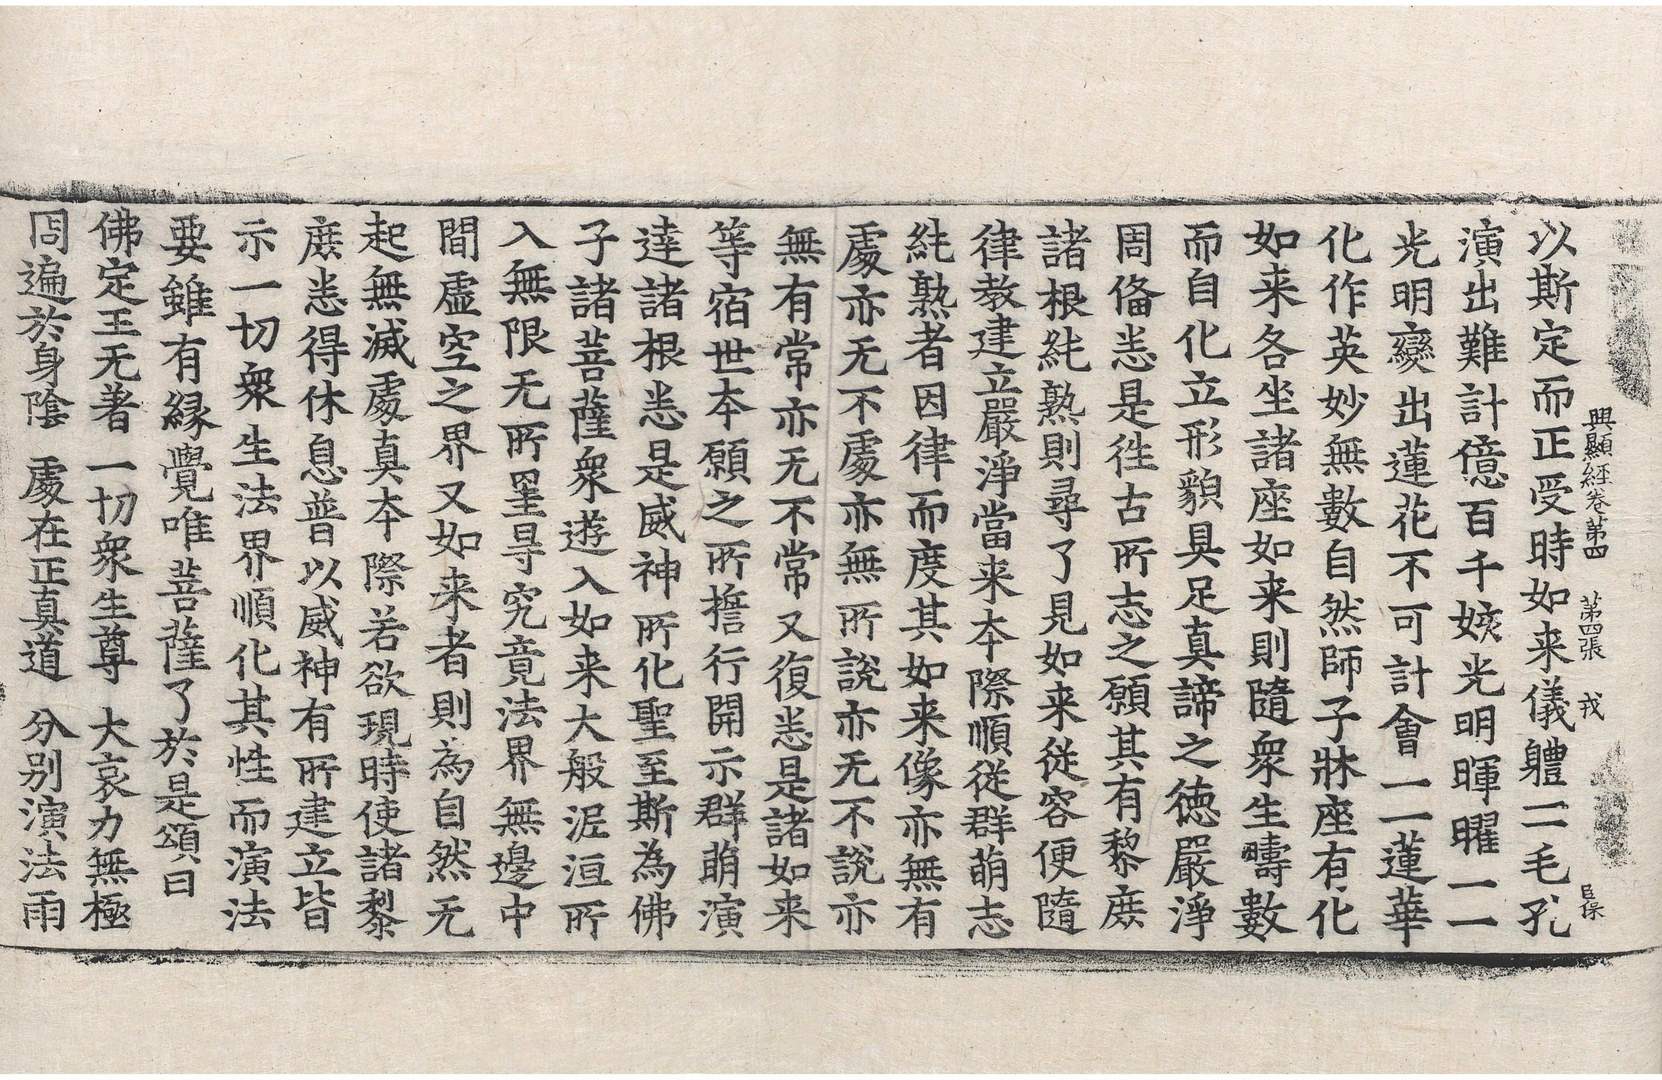 興顯經卷第四　第四張　戎　臣保
以斯定而正受時如来儀軆一一毛孔
演出難計億百千姟光明暉曜一一
光明變出蓮花不可計會一一蓮華
化作英妙無數自然師子牀座有化
如来各坐諸座如来則隨衆生疇數
而自化立形貌具足真諦之徳嚴淨
周俻悉是徃古所志之願其有黎庶
諸根純熟則尋了見如来従容便隨
律教建立嚴淨當来本際順従群萌志
純熟者因律而度其如来像亦無有
處亦无不處亦無所説亦无不説亦
無有常亦无不常又復悉是諸如来
等宿世本願之所擔行開示群萌演
逹諸根悉是威神所化聖至斯為佛
子諸菩薩衆遊入如来大般泥洹所
入無限无所罣㝵究竟法界無邊中
間虚空之界又如来者則為自然无
起無滅處真本際若欲現時使諸黎
庶悉得休息普以威神有所建立皆
示一切衆生法界順化其性而演法
要雖有縁覺唯菩薩了於是頌曰
佛定王无著　一切衆生尊　大哀力無極
周遍於身陰　處在正真道　分别演法雨